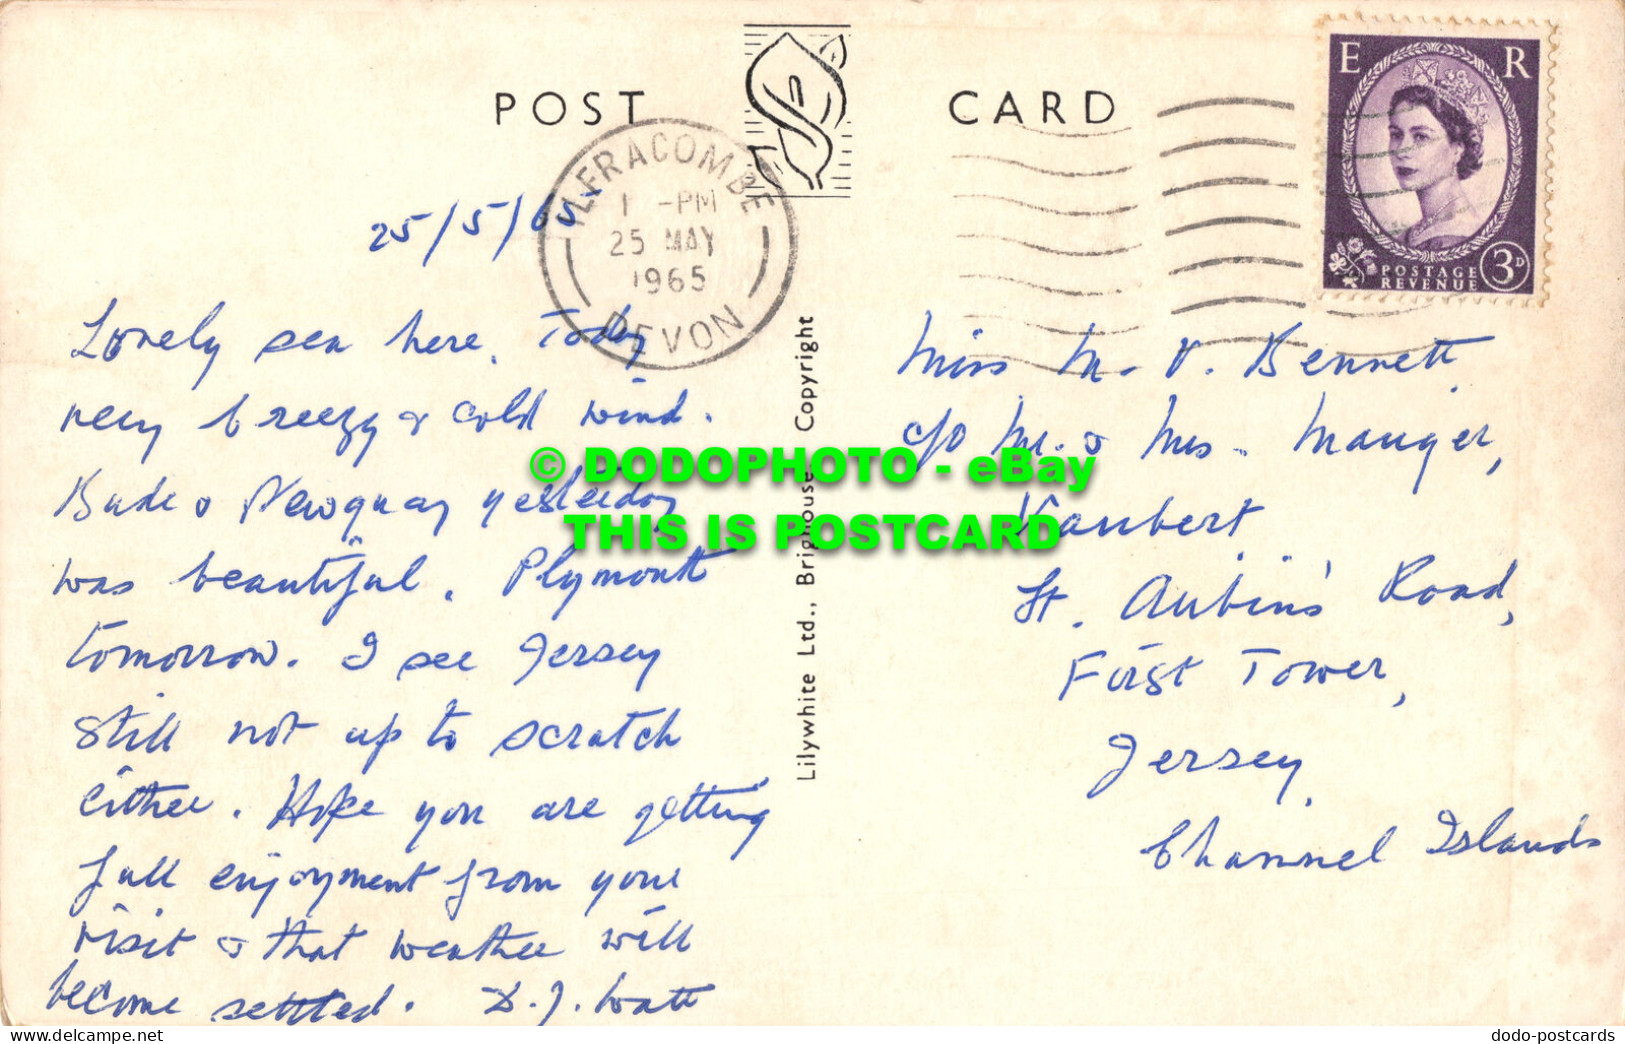 POST CARD
ILFRACOMBE
1 -PM
25 MAY
1965
DEVON
E R
POSTAGE
REVENUE
3D
25/5/65
Lovely sea here. Today
very breezy & cold wind.
Bude & Newquay yesterday
was beautiful. Plymouth
tomorrow. I see Jersey
still not up to scratch
either. Hope you are getting
full enjoyment from your
visit & that weather will
become settled. D.J. Watt
Lilywhite Ltd., Brighouse Copyright
Miss M. V. Bennett
c/o Mr. & Mrs. Mauger,
Vaubert
St. Aubin's Road,
First Tower,
Jersey,
Channel Islands
© DODOPHOTO - eBay
THIS IS POSTCARD
dodo-postcards